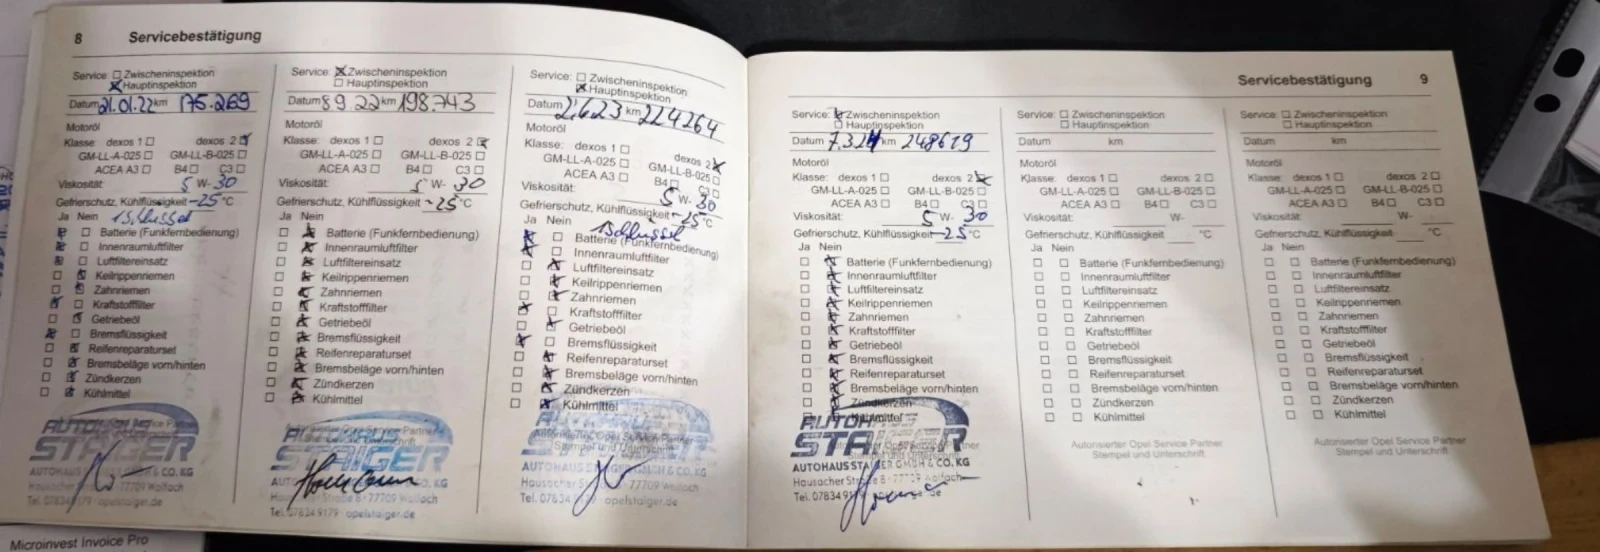 8 Servicebestätigung
Service: Zwischeninspektion
Hauptinspektion
Datum 21.01.22 km 175.269
Motoröl
Klasse: dexos 1 dexos 2
GM-LL-A-025 GM-LL-B-025
ACEA A3 B4 C3
Viskosität: 5 W- 30
Gefrierschutz, Kühlflüssigkeit -25 °C
Ja Nein 1 Schlüssel
Batterie (Funkfernbedienung)
Innenraumluftfilter
Luftfiltereinsatz
Keilrippenriemen
Zahnriemen
Kraftstofffilter
Getriebeöl
Bremsflüssigkeit
Reifenreparaturset
Bremsbeläge vorn/hinten
Zündkerzen
Kühlmittel
AUTOHAUS
STAIGER
AUTOHAUS & CO. KG
77709 Wolfach
Tel. 07834 9179 opelstaiger.de
Service: Zwischeninspektion
Hauptinspektion
Datum 8 9.22 km 198.743
Motoröl
Klasse: dexos 1 dexos 2
GM-LL-A-025 GM-LL-B-025
ACEA A3 B4 C3
Viskosität: 5 W- 30
Gefrierschutz, Kühlflüssigkeit -25 °C
Ja Nein
Batterie (Funkfernbedienung)
Innenraumluftfilter
Luftfiltereinsatz
Keilrippenriemen
Zahnriemen
Kraftstofffilter
Getriebeöl
Bremsflüssigkeit
Reifenreparaturset
Bremsbeläge vorn/hinten
Zündkerzen
Kühlmittel
STAIGER
CO. KG
Hausacher Straße 8 · 77709 Wolfach
Tel. 07834 9179 · opelstaiger.de
Service: Zwischeninspektion
Hauptinspektion
Datum 2.6.23 km 224264
Motoröl
Klasse: dexos 1 dexos 2
GM-LL-A-025 GM-LL-B-025
ACEA A3 B4 C3
Viskosität: 5 W- 30
Gefrierschutz, Kühlflüssigkeit -25 °C
Ja Nein 1 Schlüssel
Batterie (Funkfernbedienung)
Innenraumluftfilter
Luftfiltereinsatz
Keilrippenriemen
Zahnriemen
Kraftstofffilter
Getriebeöl
Bremsflüssigkeit
Reifenreparaturset
Bremsbeläge vorn/hinten
Zündkerzen
Kühlmittel
Autorisierter Opel Service Partner
Stempel und Unterschrift
STAIGER
AUTOHAUS STAIGER GMBH & CO. KG
Hausacher 77709 Wolfach
Tel. 07834 opelstaiger.de
Servicebestätigung 9
Service: Zwischeninspektion
Hauptinspektion
Datum 7.3.24 km 248619
Motoröl
Klasse: dexos 1 dexos 2
GM-LL-A-025 GM-LL-B-025
ACEA A3 B4 C3
Viskosität: 5 W 30
Gefrierschutz, Kühlflüssigkeit -25 °C
Ja Nein
Batterie (Funkfernbedienung)
Innenraumluftfilter
Luftfiltereinsatz
Keilrippenriemen
Zahnriemen
Kraftstofffilter
Getriebeöl
Bremsflüssigkeit
Reifenreparaturset
Bremsbeläge vorn/hinten
Zündkerzen
Kühlmittel
AUTOHAUS
STAIGER
AUTOHAUS STAIGER GMBH & CO. KG
Hausacher Straße 8 · 77709 Wolfach
Tel. 07834 9179
Service: Zwischeninspektion
Hauptinspektion
Datum km
Motoröl
Klasse: dexos 1 dexos 2
GM-LL-A-025 GM-LL-B-025
ACEA A3 B4 C3
Viskosität: W-
Gefrierschutz, Kühlflüssigkeit °C
Ja Nein
Batterie (Funkfernbedienung)
Innenraumluftfilter
Luftfiltereinsatz
Keilrippenriemen
Zahnriemen
Kraftstofffilter
Getriebeöl
Bremsflüssigkeit
Reifenreparaturset
Bremsbeläge vorn/hinten
Zündkerzen
Kühlmittel
Autorisierter Opel Service Partner
Stempel und Unterschrift
Service: Zwischeninspektion
Hauptinspektion
Datum km
Motoröl
Klasse: dexos 1 dexos 2
GM-LL-A-025 GM-LL-B-025
ACEA A3 B4 C3
Viskosität: W-
Gefrierschutz, Kühlflüssigkeit °C
Ja Nein
Batterie (Funkfernbedienung)
Innenraumluftfilter
Luftfiltereinsatz
Keilrippenriemen
Zahnriemen
Kraftstofffilter
Getriebeöl
Bremsflüssigkeit
Reifenreparaturset
Bremsbeläge vorn/hinten
Zündkerzen
Kühlmittel
Autorisierter Opel Service Partner
Stempel und Unterschrift
Microinvest Invoice Pro